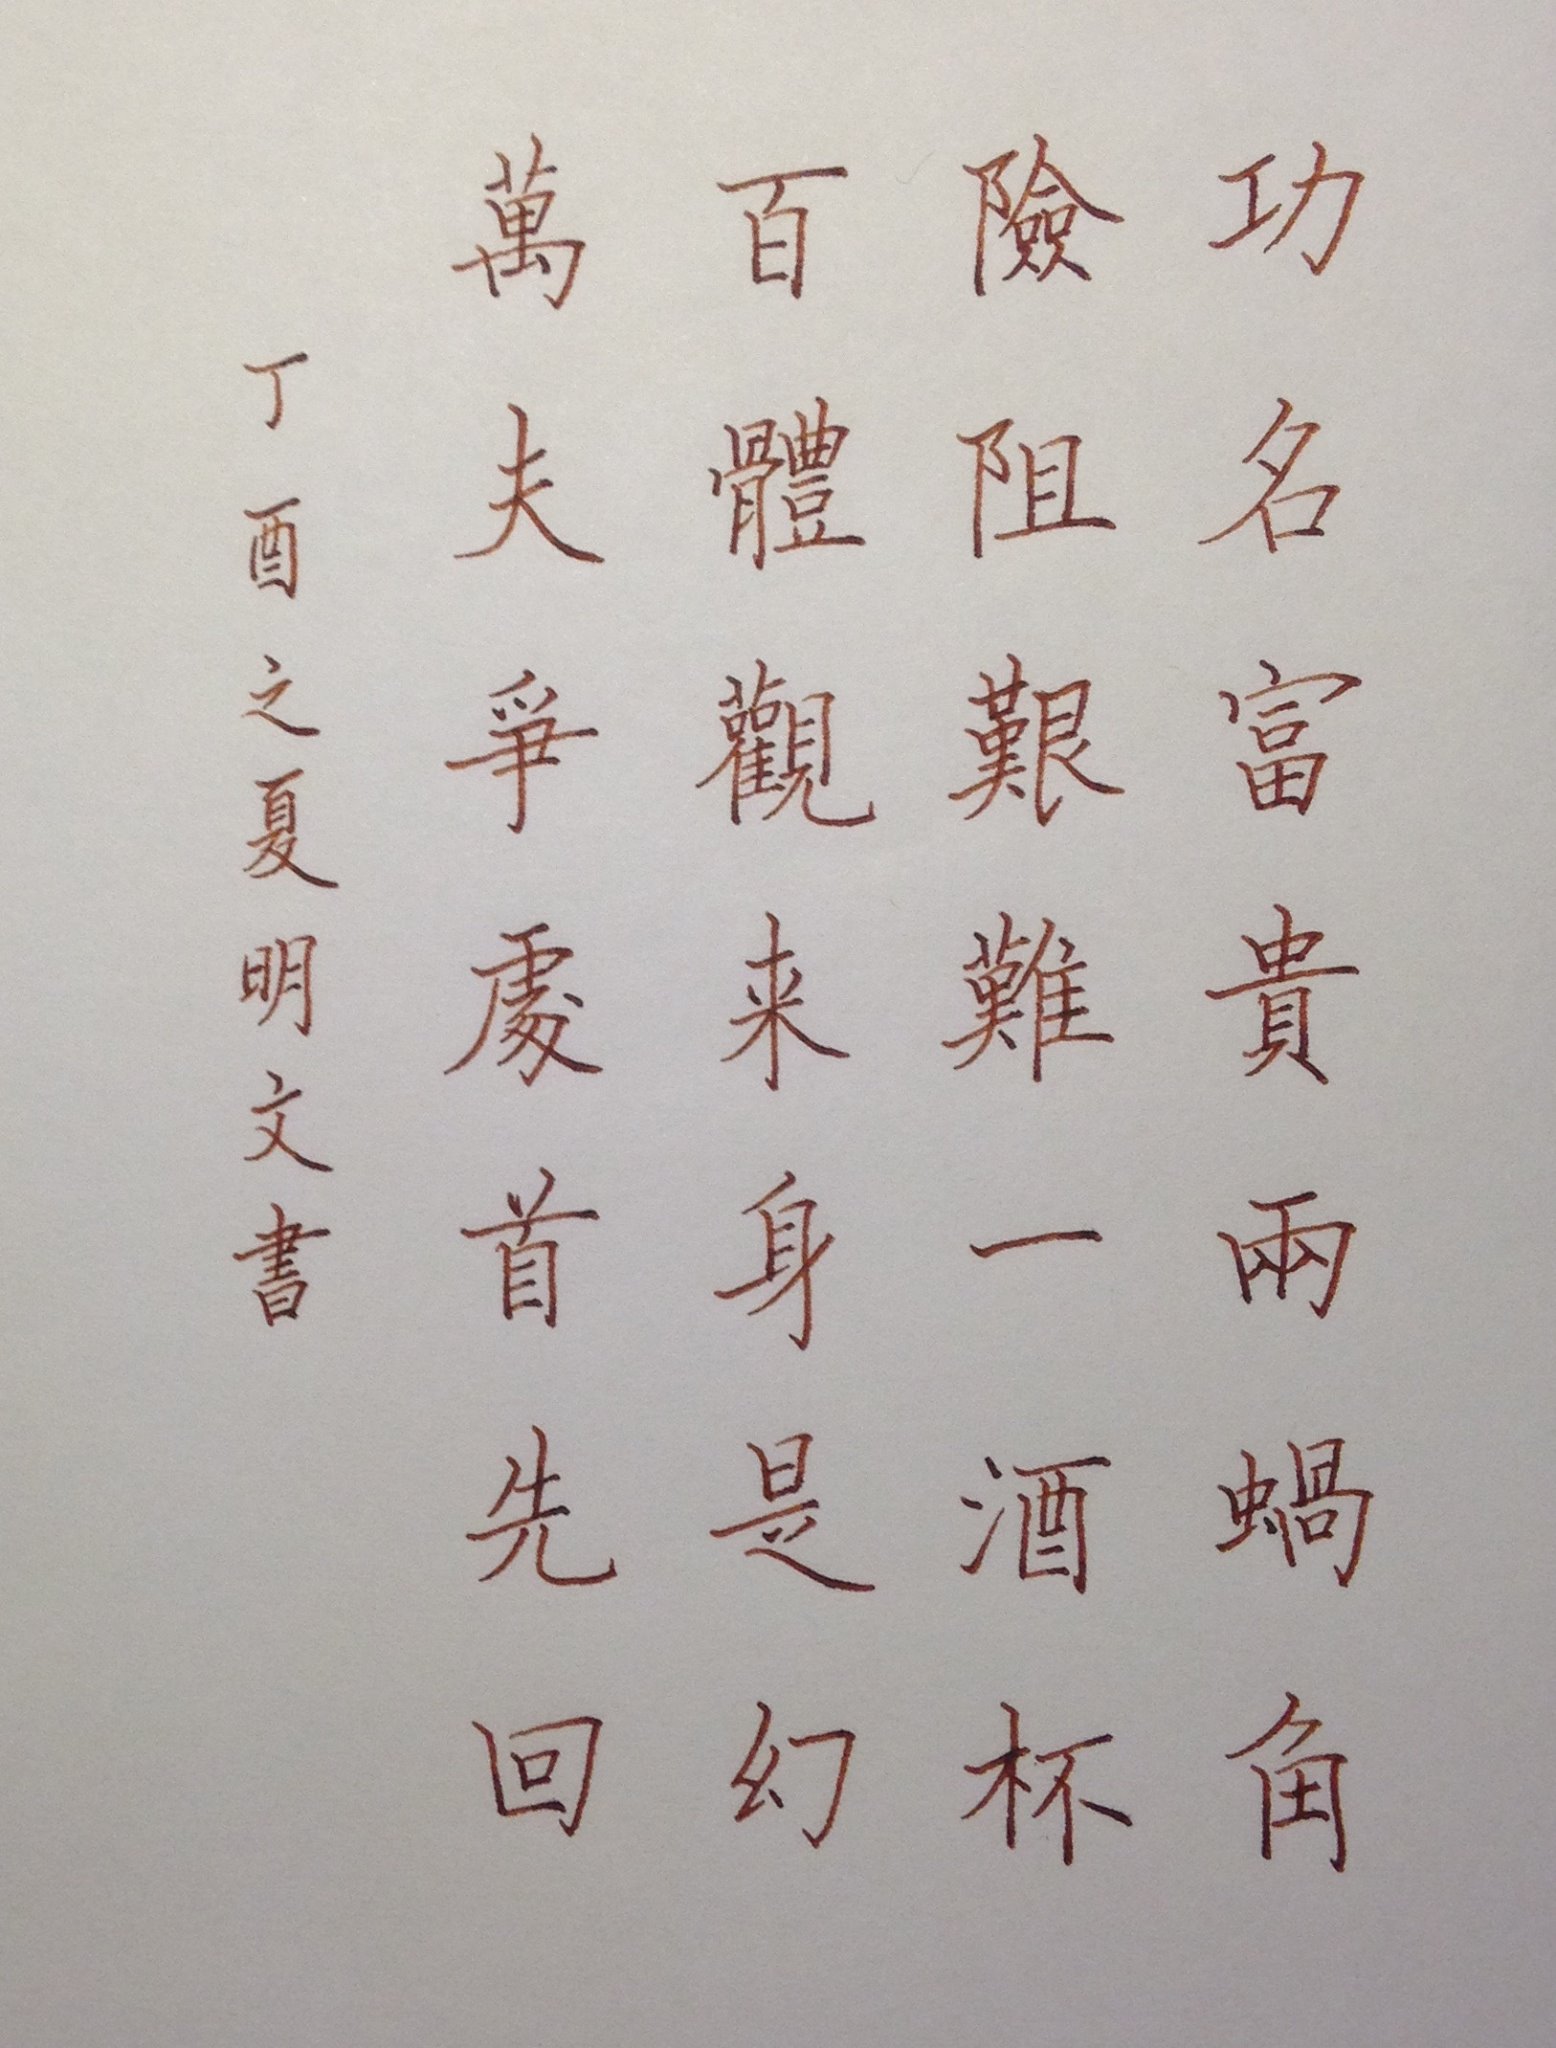 功名富貴兩蝸角
險阻艱難一酒杯
百體觀来身是幻
萬夫爭處首先回
丁酉之夏明文書